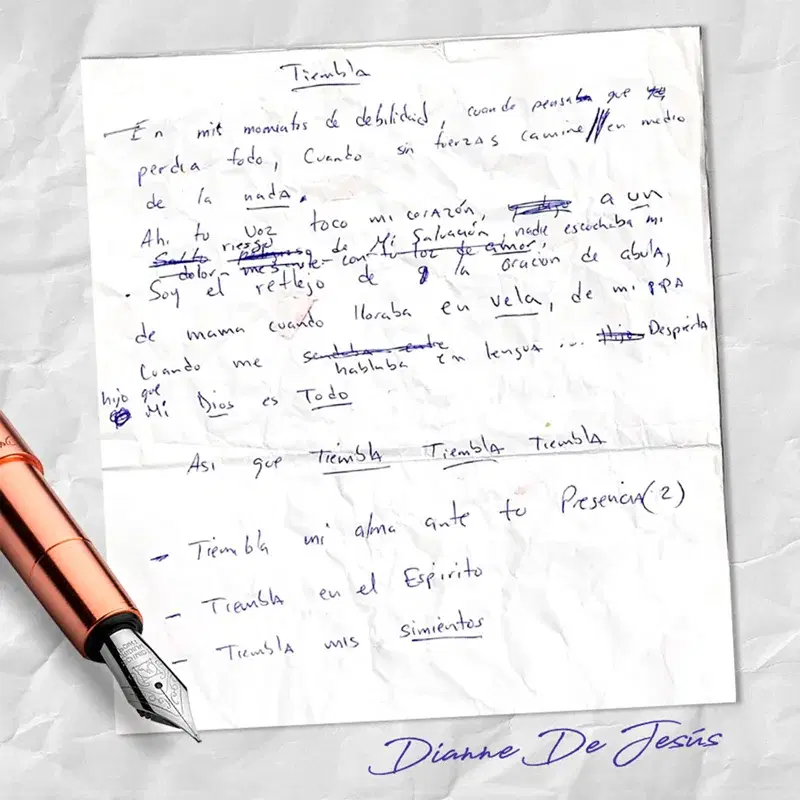 Tiembla
En mis momentos de debilidad, cuando pensaba que
perdia todo, Cuando sin fuerzas camine // en medio
de la nada.
Ahi tu voz toco mi corazón, a un
riesgo de Mi Salvación, nadie escuchaba mi
dolor
• Soy el reflejo de la oración de abula,
de mama cuando lloraba en vela, de mi papa
Cuando me hablaba en lengua ... Despierta
hijo que
Mi Dios es Todo
Asi que Tiembla Tiembla Tiembla
- Tiembla mi alma ante tu Presencia (2)
- Tiembla en el Espirito
- Tiembla mis simientos
Dianne De Jesús